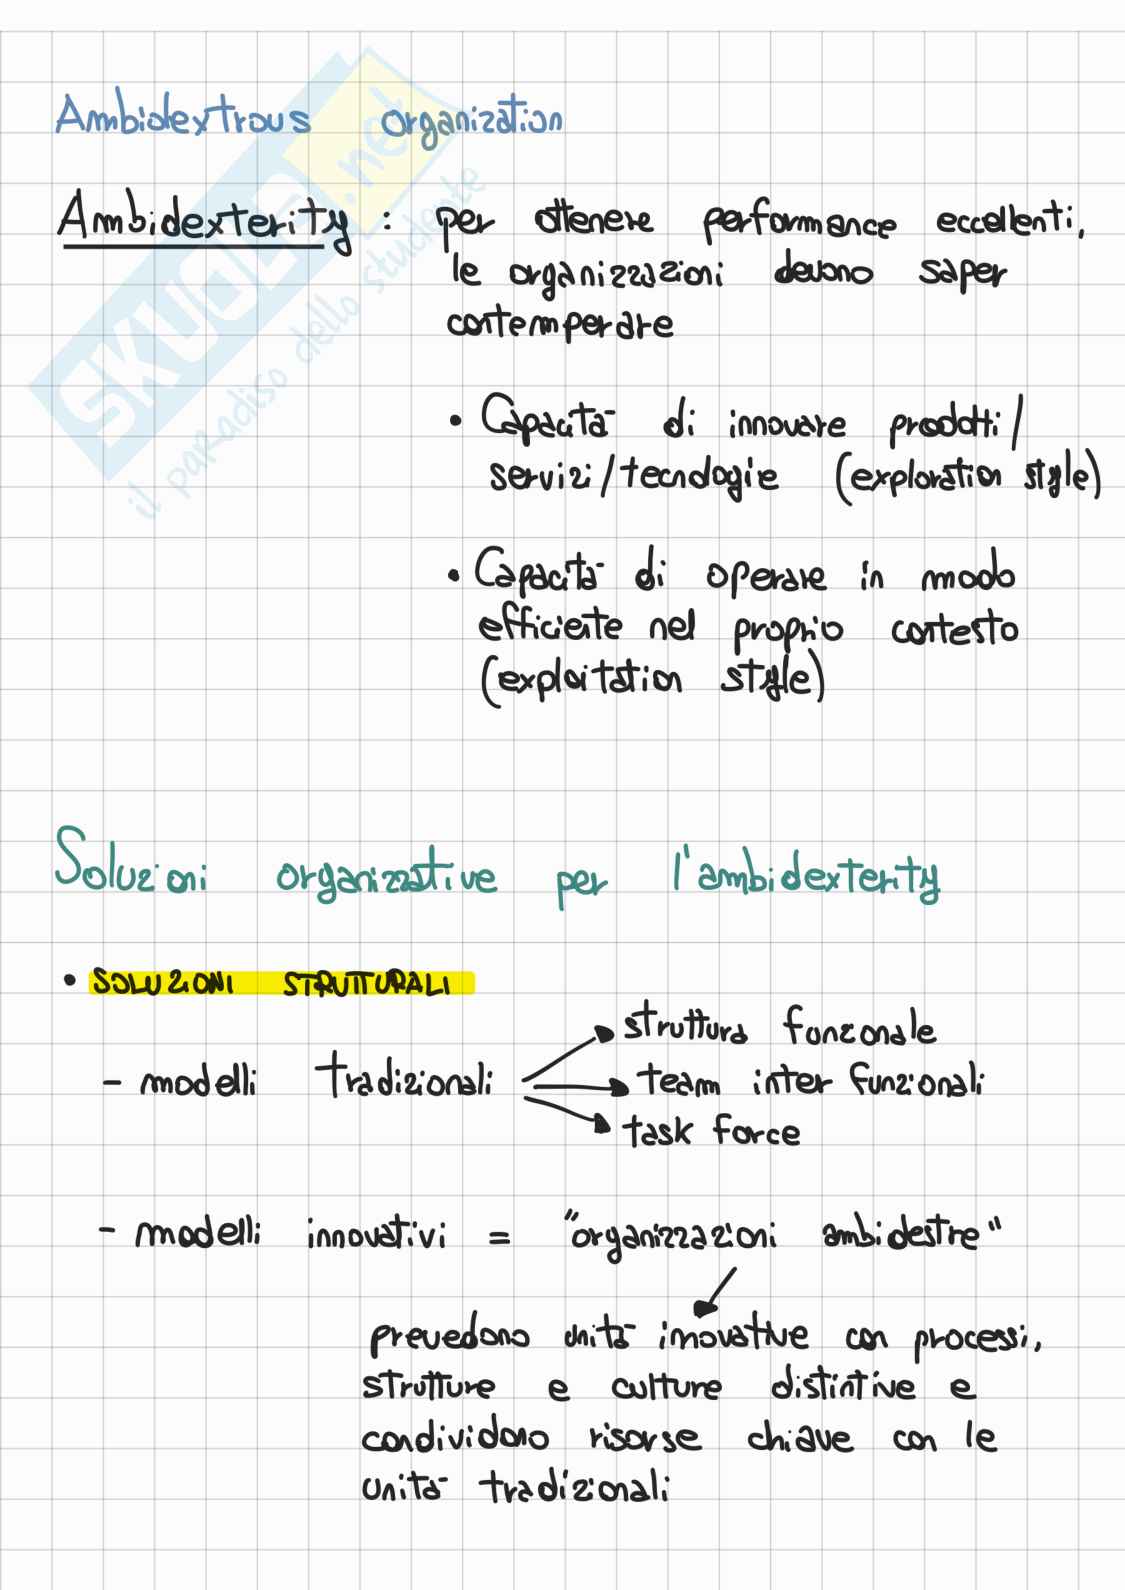 Ambidextrous organization
Ambidexterity : per ottenere performance eccellenti,
le organizzazioni devono saper
contemperare
• Capacità di innovare prodotti/
servizi/tecnologie (exploration style)
• Capacità di operare in modo
efficiente nel proprio contesto
(exploitation style)
Soluzioni organizzative per l'ambidexterity
• SOLUZIONI STRUTTURALI
struttura funzonale
- modelli tradizionali
team inter funzionali
task force
- modelli innovativi = "organizzazioni ambidestre"
prevedono unità innovative con processi,
strutture e culture distintive e
condividono risorse chiave con le
unità tradizionali
SKUOLA.net
il paradiso dello studente